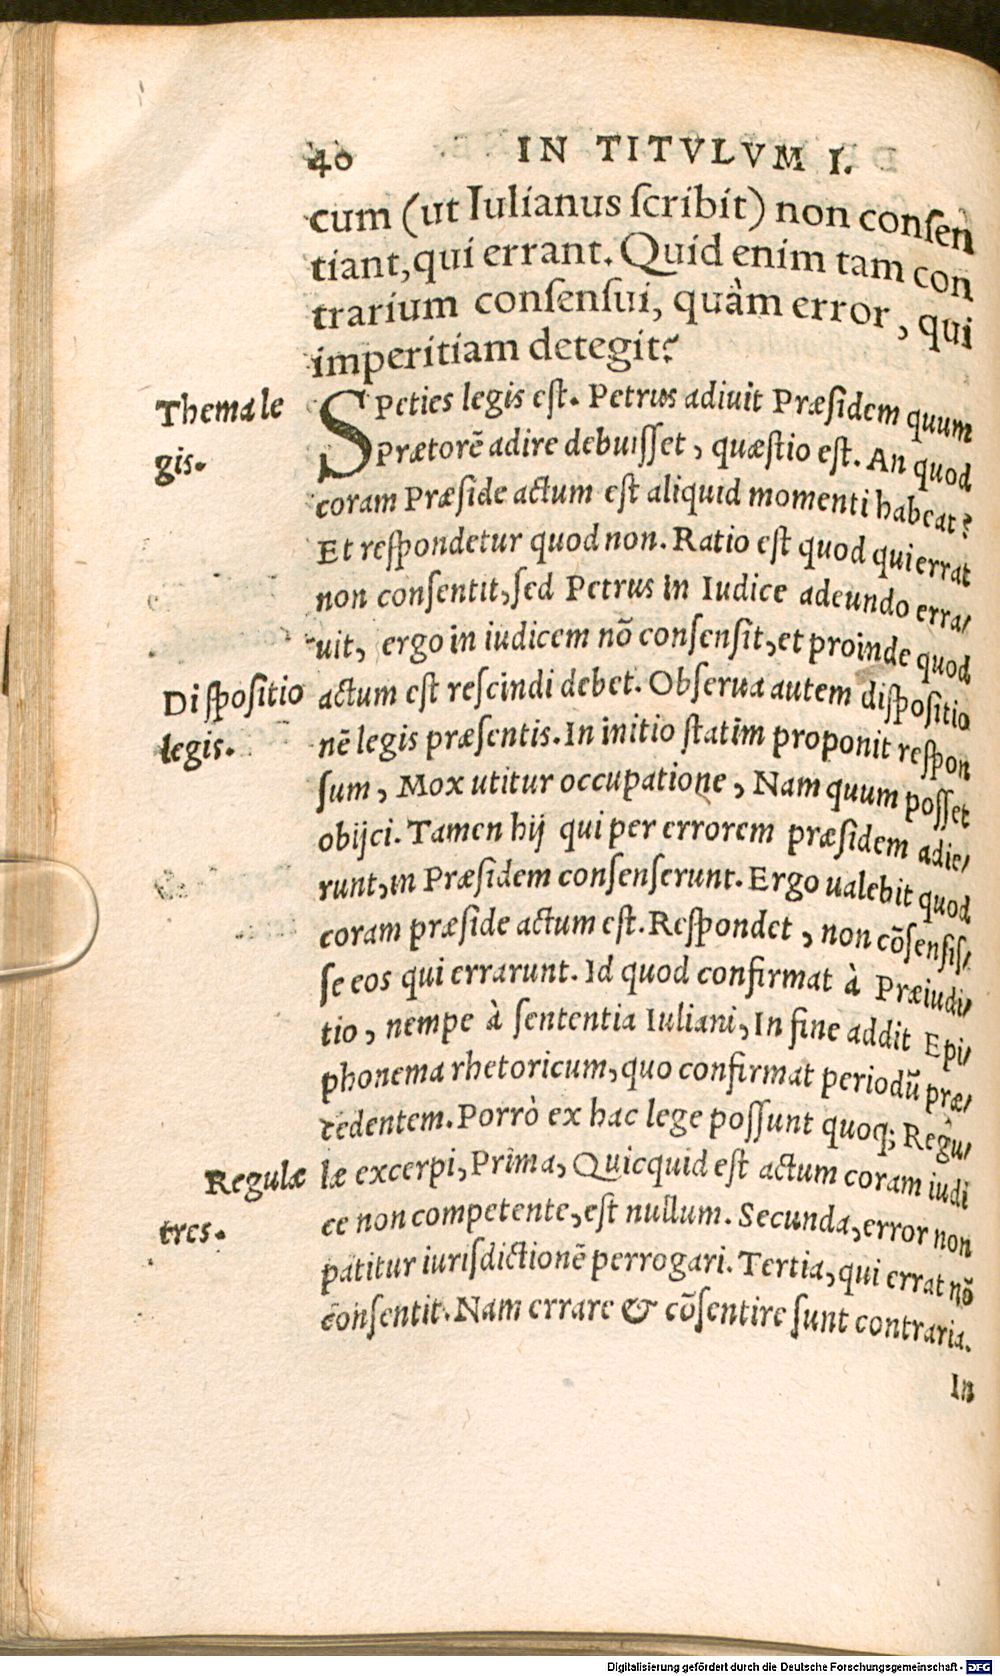 40 IN TITVLVM I.
cum (ut Iulianus scribit) non consen
tiant, qui errant. Quid enim tam con
trarium consensui, quàm error, qui
imperitiam detegit?
Thema le
gis.
SPeties legis est. Petrus adiuit Præsidem quum
Prætorē adire debuisset, quæstio est. An quod
coram Præside actum est aliquid momenti habeat?
Et respondetur quod non. Ratio est quod qui errat
non consentit, sed Petrus in Iudice adeundo erra/
uit, ergo in iudicem nō consensit, et proinde quod
Dispositio
legis.
actum est rescindi debet. Obserua autem dispositio
nē legis præsentis. In initio statim proponit respon
sum, Mox utitur occupatione, Nam quum posset
obijci. Tamen hij qui per errorem præsidem adie/
runt, in Præsidem consenserunt. Ergo ualebit quod
coram præside actum est. Respondet, non cōsensis/
se eos qui errarunt. Id quod confirmat à Præiudi/
tio, nempe à sententia Iuliani, In fine addit Epi/
phonema rhetoricum, quo confirmat periodū præ/
cedentem. Porrò ex hac lege possunt quoq; Regu/
Regulæ
tres.
læ excerpi, Prima, Quicquid est actum coram iudi
ce non competente, est nullum. Secunda, error non
patitur iurisdictionē perrogari. Tertia, qui errat nō
consentit. Nam errare & cōsentire sunt contraria.
In
Digitalisierung gefördert durch die Deutsche Forschungsgemeinschaft - DFG